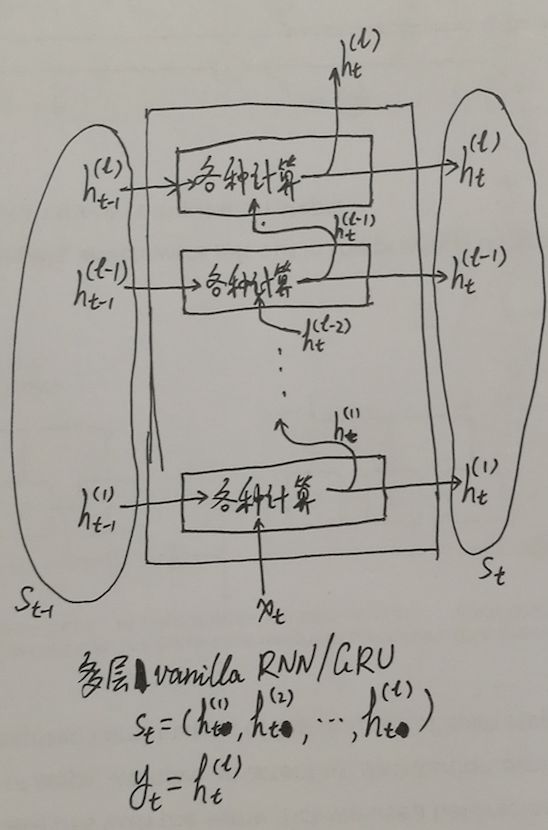 h_t^(l)
h_{t-1}^(l) 各种计算 h_t^(l)
h_t^(l-1)
h_{t-1}^(l-1) 各种计算 h_t^(l-1)
h_t^(l-2)
⋮
h_t^(1)
h_{t-1}^(1) 各种计算 h_t^(1)
S_{t-1} x_t S_t
多层 vanilla RNN/GRU
S_t = (h_t^(1), h_t^(2), ..., h_t^(l))
y_t = h_t^(l)